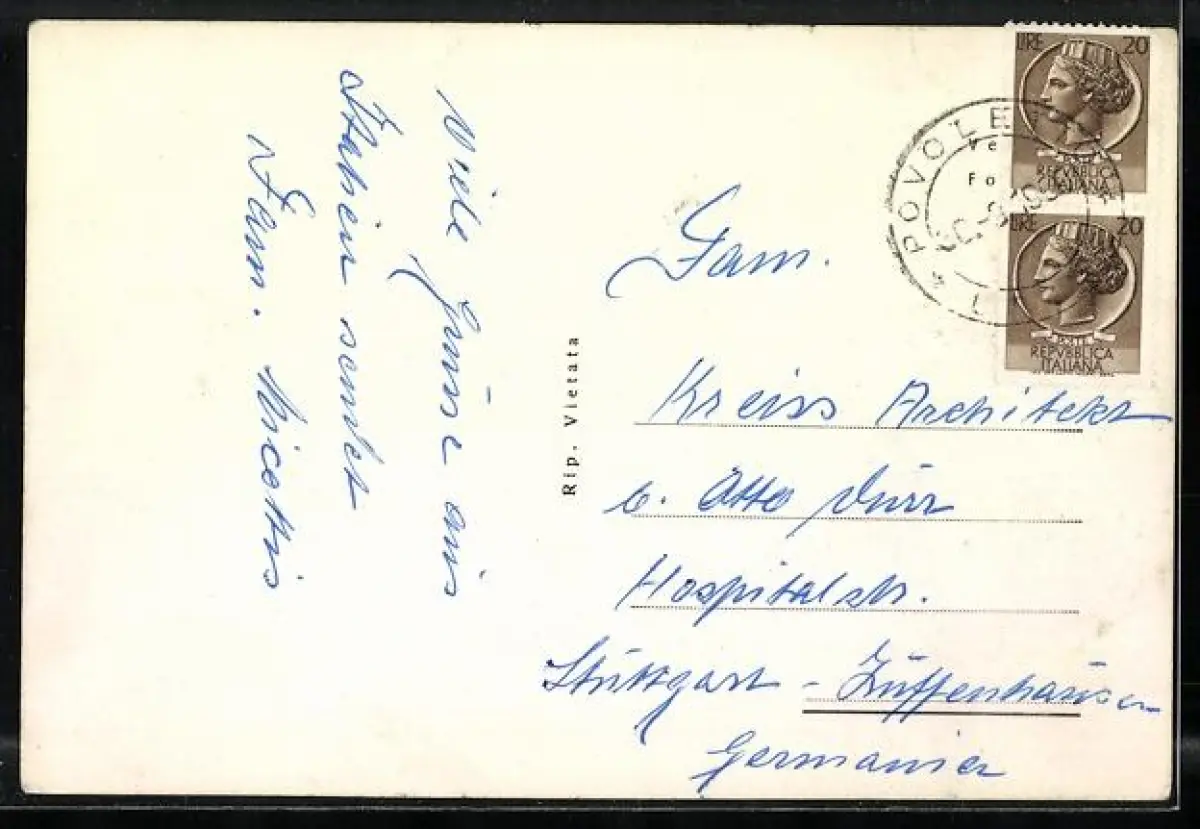 Viele Grüsse aus
Italien sendet
Fam. Micottis
Rip. Vietata
LIRE 20
POSTE
REPVBBLICA
ITALIANA
POVOLE
Ve
Fo
LIRE 20
POSTE
REPVBBLICA
ITALIANA
Fam.
Kreiss Architekt
b. Otto Dürr
Hospitalstr.
Stuttgart - Zuffenhausen
Germania